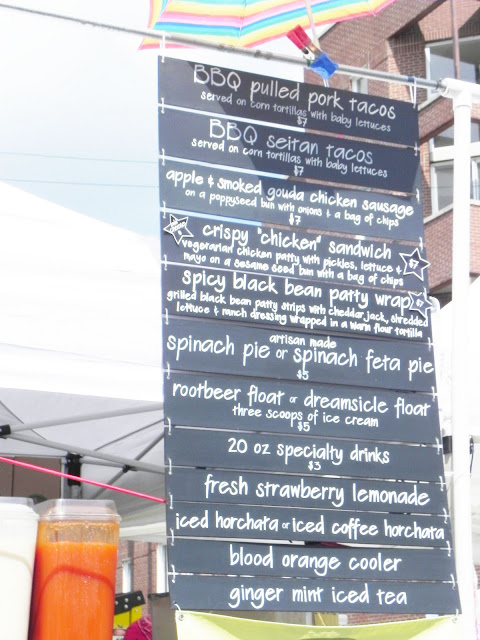 BBQ pulled pork tacos
served on corn tortillas with baby lettuces
$7
BBQ seitan tacos
served on corn tortillas with baby lettuces
$7
apple & smoked gouda chicken sausage
on a poppyseed bun with onions & a bag of chips
$7
crispy "chicken" sandwich
vegetarian chicken patty with pickles, lettuce &
mayo on a sesame seed bun with a bag of chips
$7
spicy black bean patty wrap
grilled black bean patty strips with cheddar jack, shredded
lettuce & ranch dressing wrapped in a warm flour tortilla
artisan made
spinach pie or spinach feta pie
$5
rootbeer float or dreamsicle float
three scoops of ice cream
$5
20 oz specialty drinks
$3
fresh strawberry lemonade
iced horchata or iced coffee horchata
blood orange cooler
ginger mint iced tea